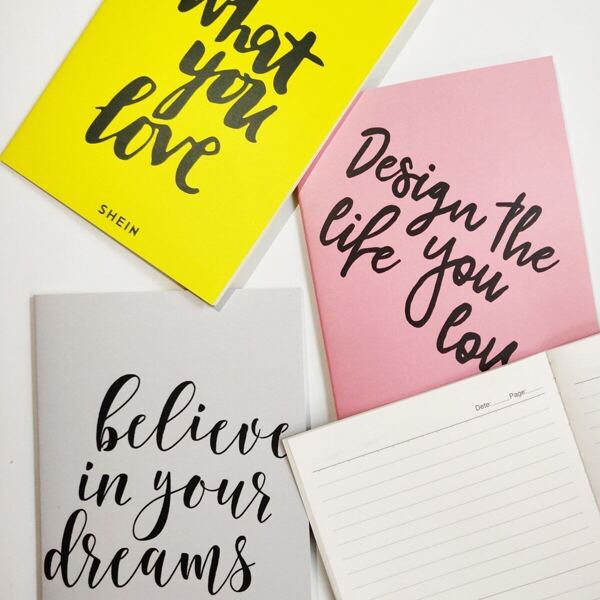 what
you
love
SHEIN
Design the
life you
lov
believe
in your
dreams
Date: Page: